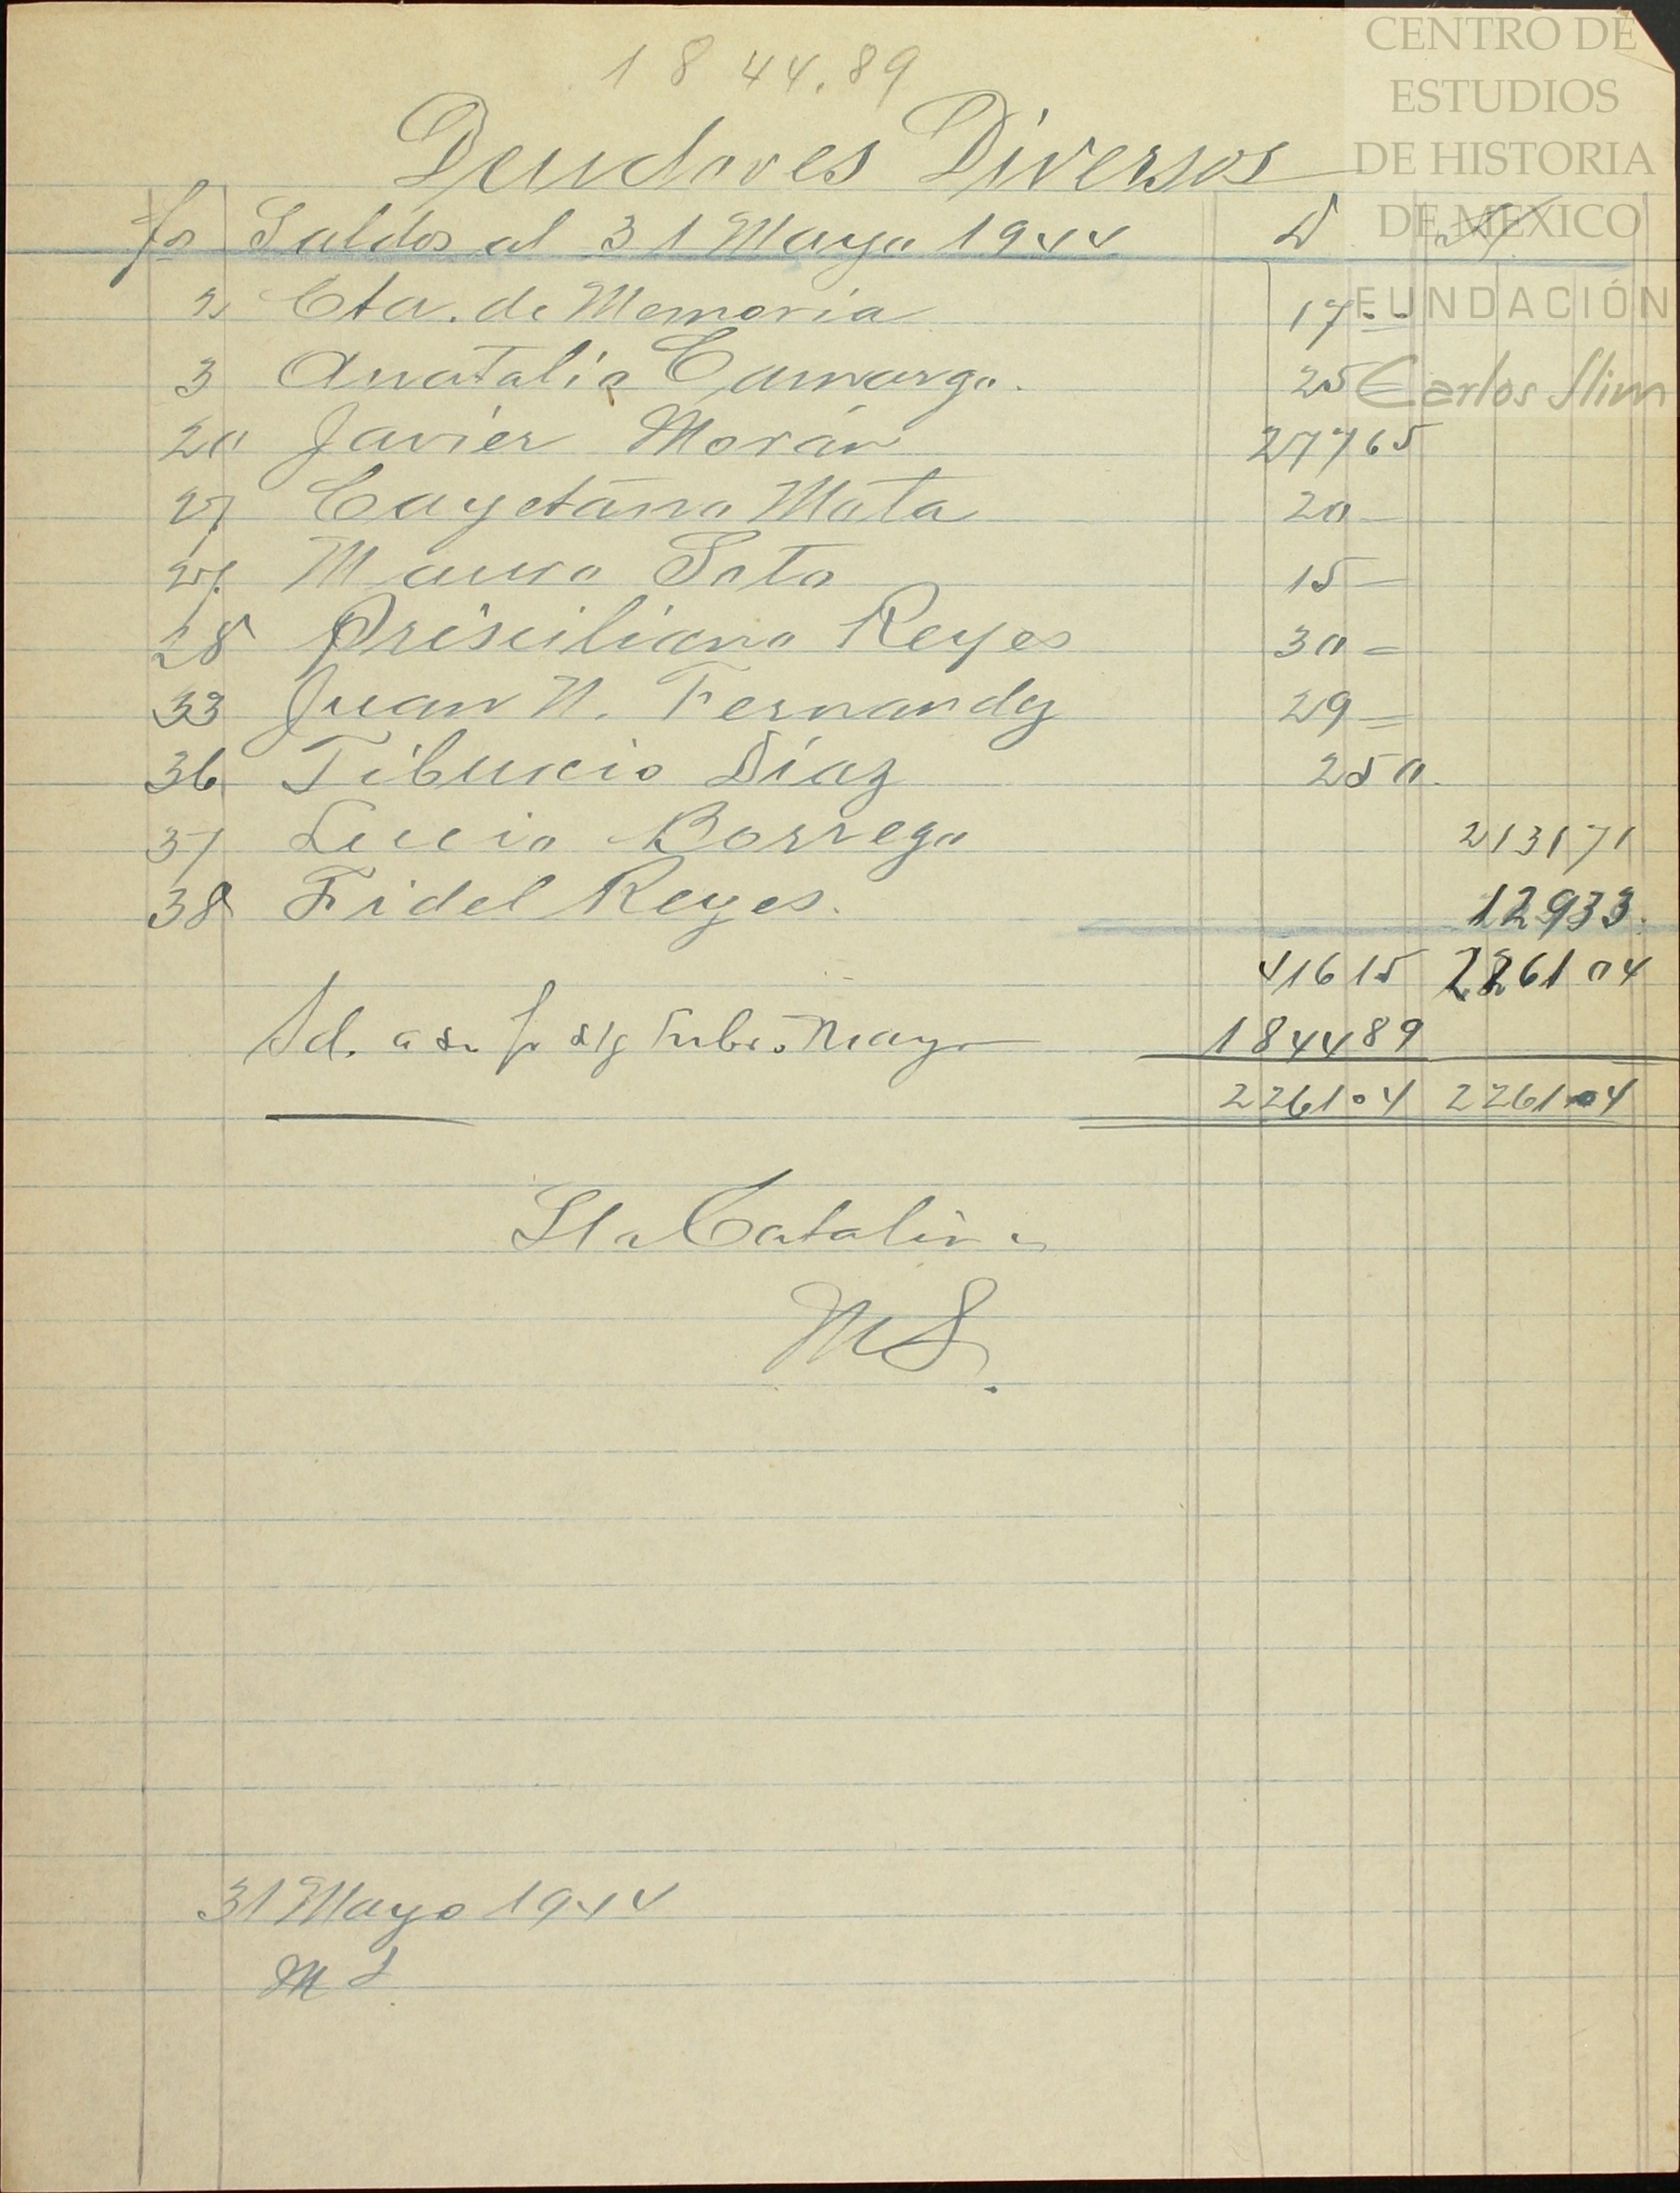 CENTRO DE
ESTUDIOS
DE HISTORIA
DE MEXICO
FUNDACIÓN
Carlos Slim
1844.89
Deudores Diversos
fo Saldos al 31 Mayo 1944 D A
2 Cta. de Memoria 17--
3 Anatalio Camargo. 25
20 Javier Morán 277 65
27 Cayetano Mata 20 —
27 Mauro Soto 15 —
28 Prisciliano Reyes 30 =
33 Juan N. Fernandez 29 =
36 Tibucio Díaz 2 50.
37 Lucio Borrego 2131 71
38 Fidel Reyes. 129 33.
416 15 2261 04
Sd. a su fo Mayo 1844 89
2261 04 2261 04
Sta Catalina
MS.
31 Mayo 1944
MS